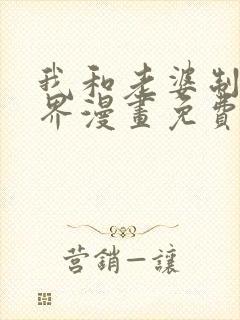 我和老婆制
界漫畫免費
营銷—讓